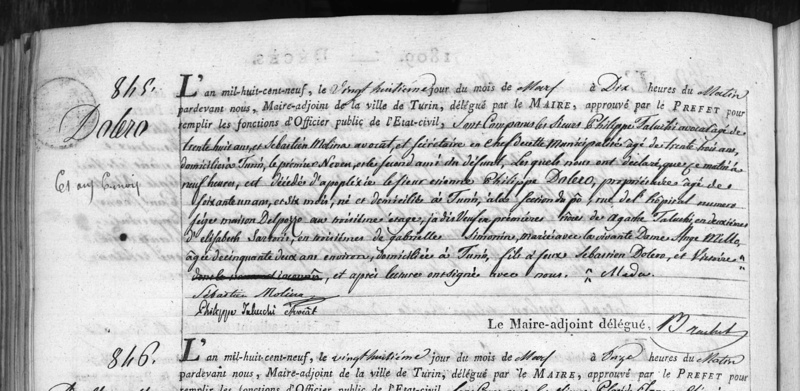 845.
Dalero
61 ans 6 mois
L'an mil-huit-cent-neuf, le vingt huitième jour du mois de Mars à Dix heures du Matin
pardevant nous, Maire-adjoint de la ville de Turin, délégué par le MAIRE, approuvé par le PREFET pour
remplir les fonctions d'Officier public de l'Etat-civil, sont Comparus les sieurs Philippe Talucchi avocat agé de
trente huit ans, et Sébastien Molina avocat, et sécrétaire en chef de cette Municipalité agé de trente huit ans,
domiciliés à Turin, le premier Neveu, et le second ami du défunt, les quels nous ont déclaré, que ce matin à
neuf heures, est décédé d'apoplexie le sieur etienne Philippe Dalero, propriétaire agé de
soixante un an, et six mois, né et domicilié à Turin, section du pò, rue de l'hôpital numero
seize maison Delpozzo au troisième étage, jadis Veuf en premières de Agathe Talucchi, en deuxièmes
d'elisabeth, en troisièmes de gabrielle Simonine, marié avec la vivante Dame Ange Mello,
agée de cinquante deux ans environ, domiciliée à Turin, fils de feux Sébastien Dalero, et
, et après lecture ont signé avec nous.
Sébastien Molina
Philippe Talucchi Avocat
Le Maire-adjoint délégué,
846.
L'an mil-huit-cent-neuf, le vingt huitième jour du mois de Mars à Onze heures du Matin
pardevant nous, Maire-adjoint de la ville de Turin, délégué par le MAIRE, approuvé par le PREFET pour
remplir les fonctions d'Officier public de l'Etat-civil,